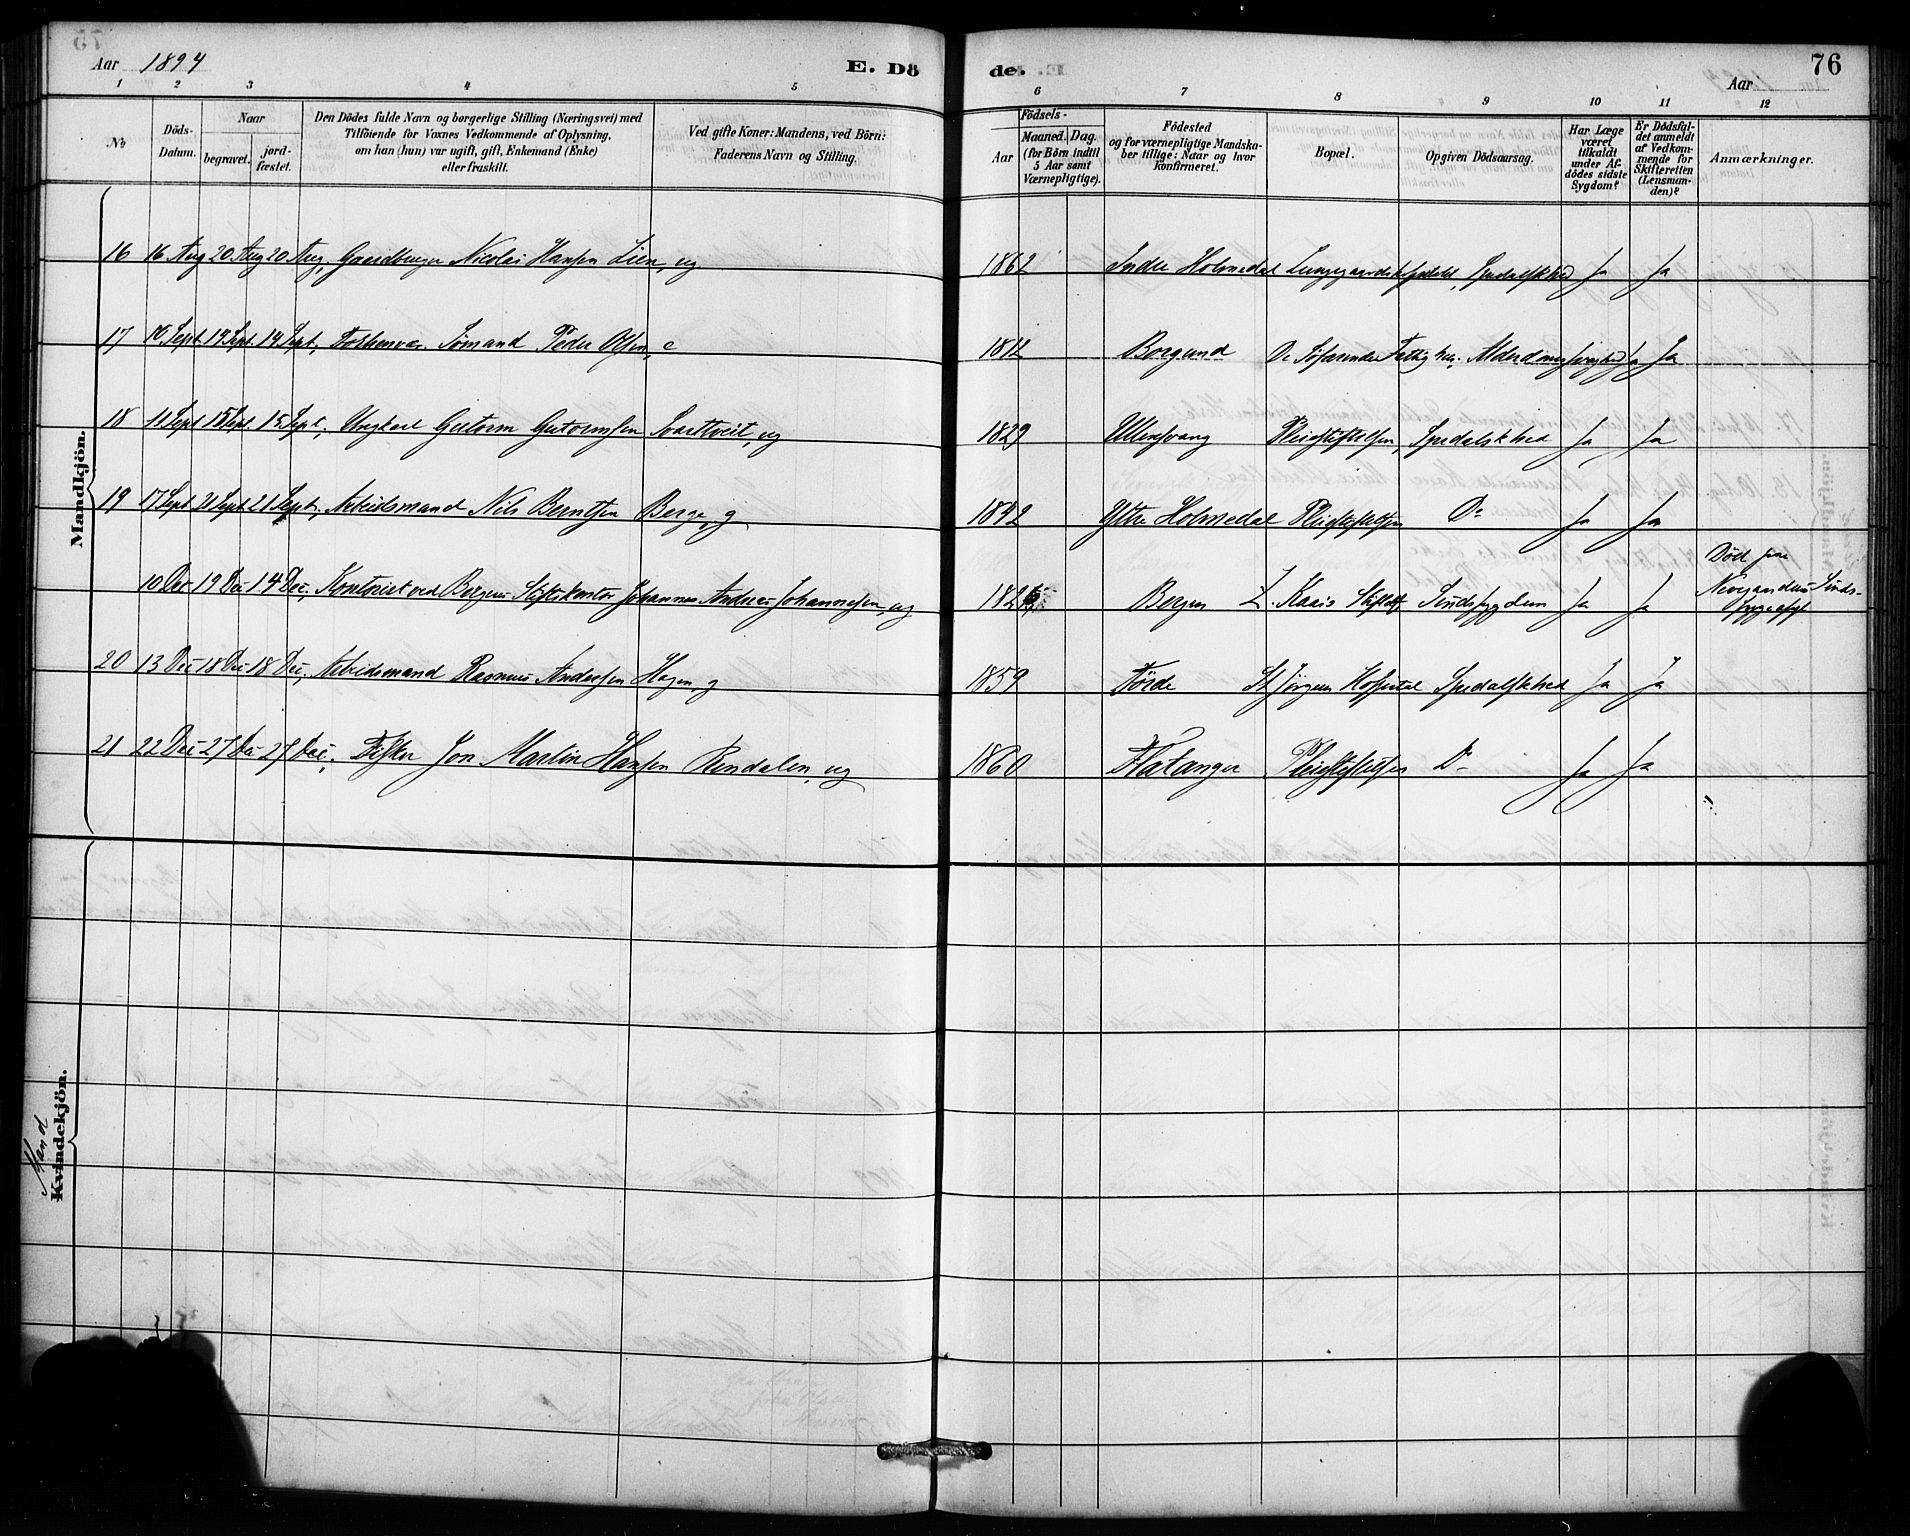 Aar 1894 E. Dö de. 76
Aar
1 2 3 4 5 6 7 8 9 10 11 12
No Döds-Datum. Naar begravet. jord-fæstet. Den Dödes fulde Navn og borgerlige Stilling (Næringsvei) med Tilföiende for Voxnes Vedkommende af Oplysning, om han (hun) var ugift, gift, Enkemand (Enke) eller fraskilt. Ved gifte Koner: Mandens, ved Börn: Faderens Navn og Stilling. Födsels- Aar Maaned. Dag. (for Börn indtil 5 Aar samt Værnepligtige). Födested og for værnepligtige Mandskaber tillige: Naar og hvor konfirmeret. Bopæl. Opgiven Dödsaarsag. Har Læge været tilkaldt under Afdödes sidste Sygdom? Er Dödsfaldet anmeldt af Vedkommende for Skifteretten (Lensmanden)? Anmærkninger.
Mandkjön.
16 16 Aug 20 Aug 20 Aug, Gaardbruger Nicolai Hansen Lien, ug 1862 Indre Holmedal Lungegaardshospitalet, Spedalskhed Ja Ja
17 10 Sept 14 Sept. 14 Sept, Forhenvær. Sømand Peder Olsen, e 1812 Borgund De Søfarendes Fattighus. Alderdomssvaghed Ja Ja
18 11 Sept 15 Sept. 15 Sept, Ungkarl Guttorm Guttormsen Svarttveit, ug 1829 Ullensvang Pleiestiftelsen, Spedalskhed Ja Ja
19 17 Sept 21 Sept 21 Sept, Arbeidsmand Nils Berntsen Berge, g 1842 Ytre Holmedal Pleiestiftelsen Do Ja Ja
10 Dec 19 Dec 14 Dec, Kontorist ved Bergens Stiftskontor Johannes Andreas Johannesen, ug Bergen Z. Kaais Stiftelse Sindssygdom Ja Ja Død paa Neevengaardens Sinds-sygeasyl
20 13 Dec 18 Dec 18 Dec, Arbeidsmand Rasmus Andersen Hagen, g 1859 Førde St Jørgens Hospital Spedalskhed Ja Ja
21 22 Dec 27 Dec 27 Dec, Fisker Jon Martin Hansen Rendalen, ug 1860 Flatanger Pleiestiftelsen Do Ja Ja
Mand
Kvindekjön.